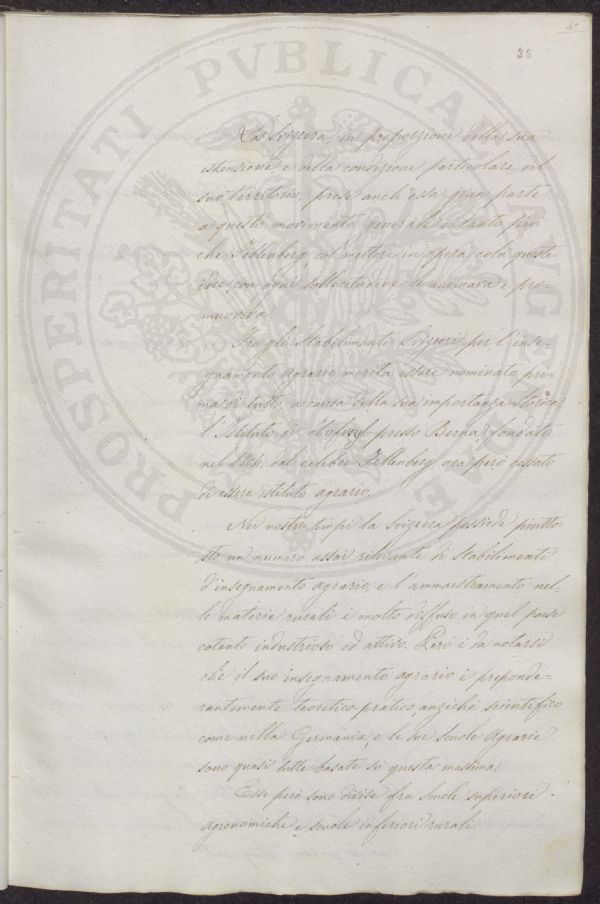 4°
38
PROSPERITATI PVBLICAE AVGENDAE
La Svizzera, in proporzione della sua
estensione e della condizione particolare del
suo territorio, prese anch'essa gran parte
a questo movimento generale e tanto più
che Fellenberg col mettere in opera colà queste
idee con ogni sollecitudine le animava e pro-
muoveva.
Fra gli Stabilimenti Svizzeri per l'inse-
gnamento agrario merita essere nominato pri-
ma di tutto, a causa della sua importanza storica,
l'Istituto di Hofwyl presso Berna fondato
nel dal celebre Fellenberg ora però cessato
di essere istituto agrario.
Nei nostri tempi la Svizzera possiede piutto-
sto un numero assai rilevante di Stabilimenti
d'insegnamento agrario, e l'ammaestramento nel-
le materie rurali è molto diffuso in quel paese
cotanto industrioso ed attivo. Però è da notarsi
che il suo insegnamento agrario è preponde-
rantemente teoretico pratico, anziché scientifico
come nella Germania, e le sue Scuole Agrarie
sono quasi tutte basate su questa massima.
Esse però sono divise fra Scuole superiori
agronomiche e scuole inferiori rurali.